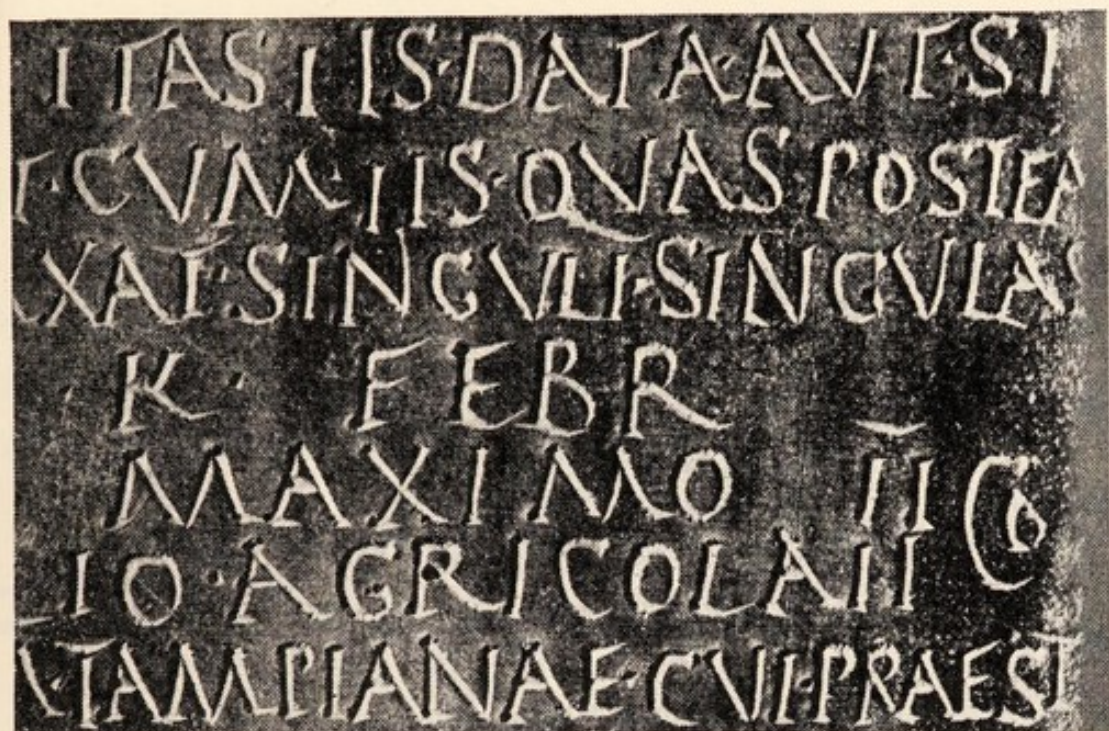 ITAS IIS·DATA·AUT·SI
T·CVM·IIS·QVAS POSTEA
XAT·SINGVLI·SINGVLAS
K · FEBR
MAXIMO II CO
IO·AGRICOLA II
TAMPIANAE·CVI·PRAEST